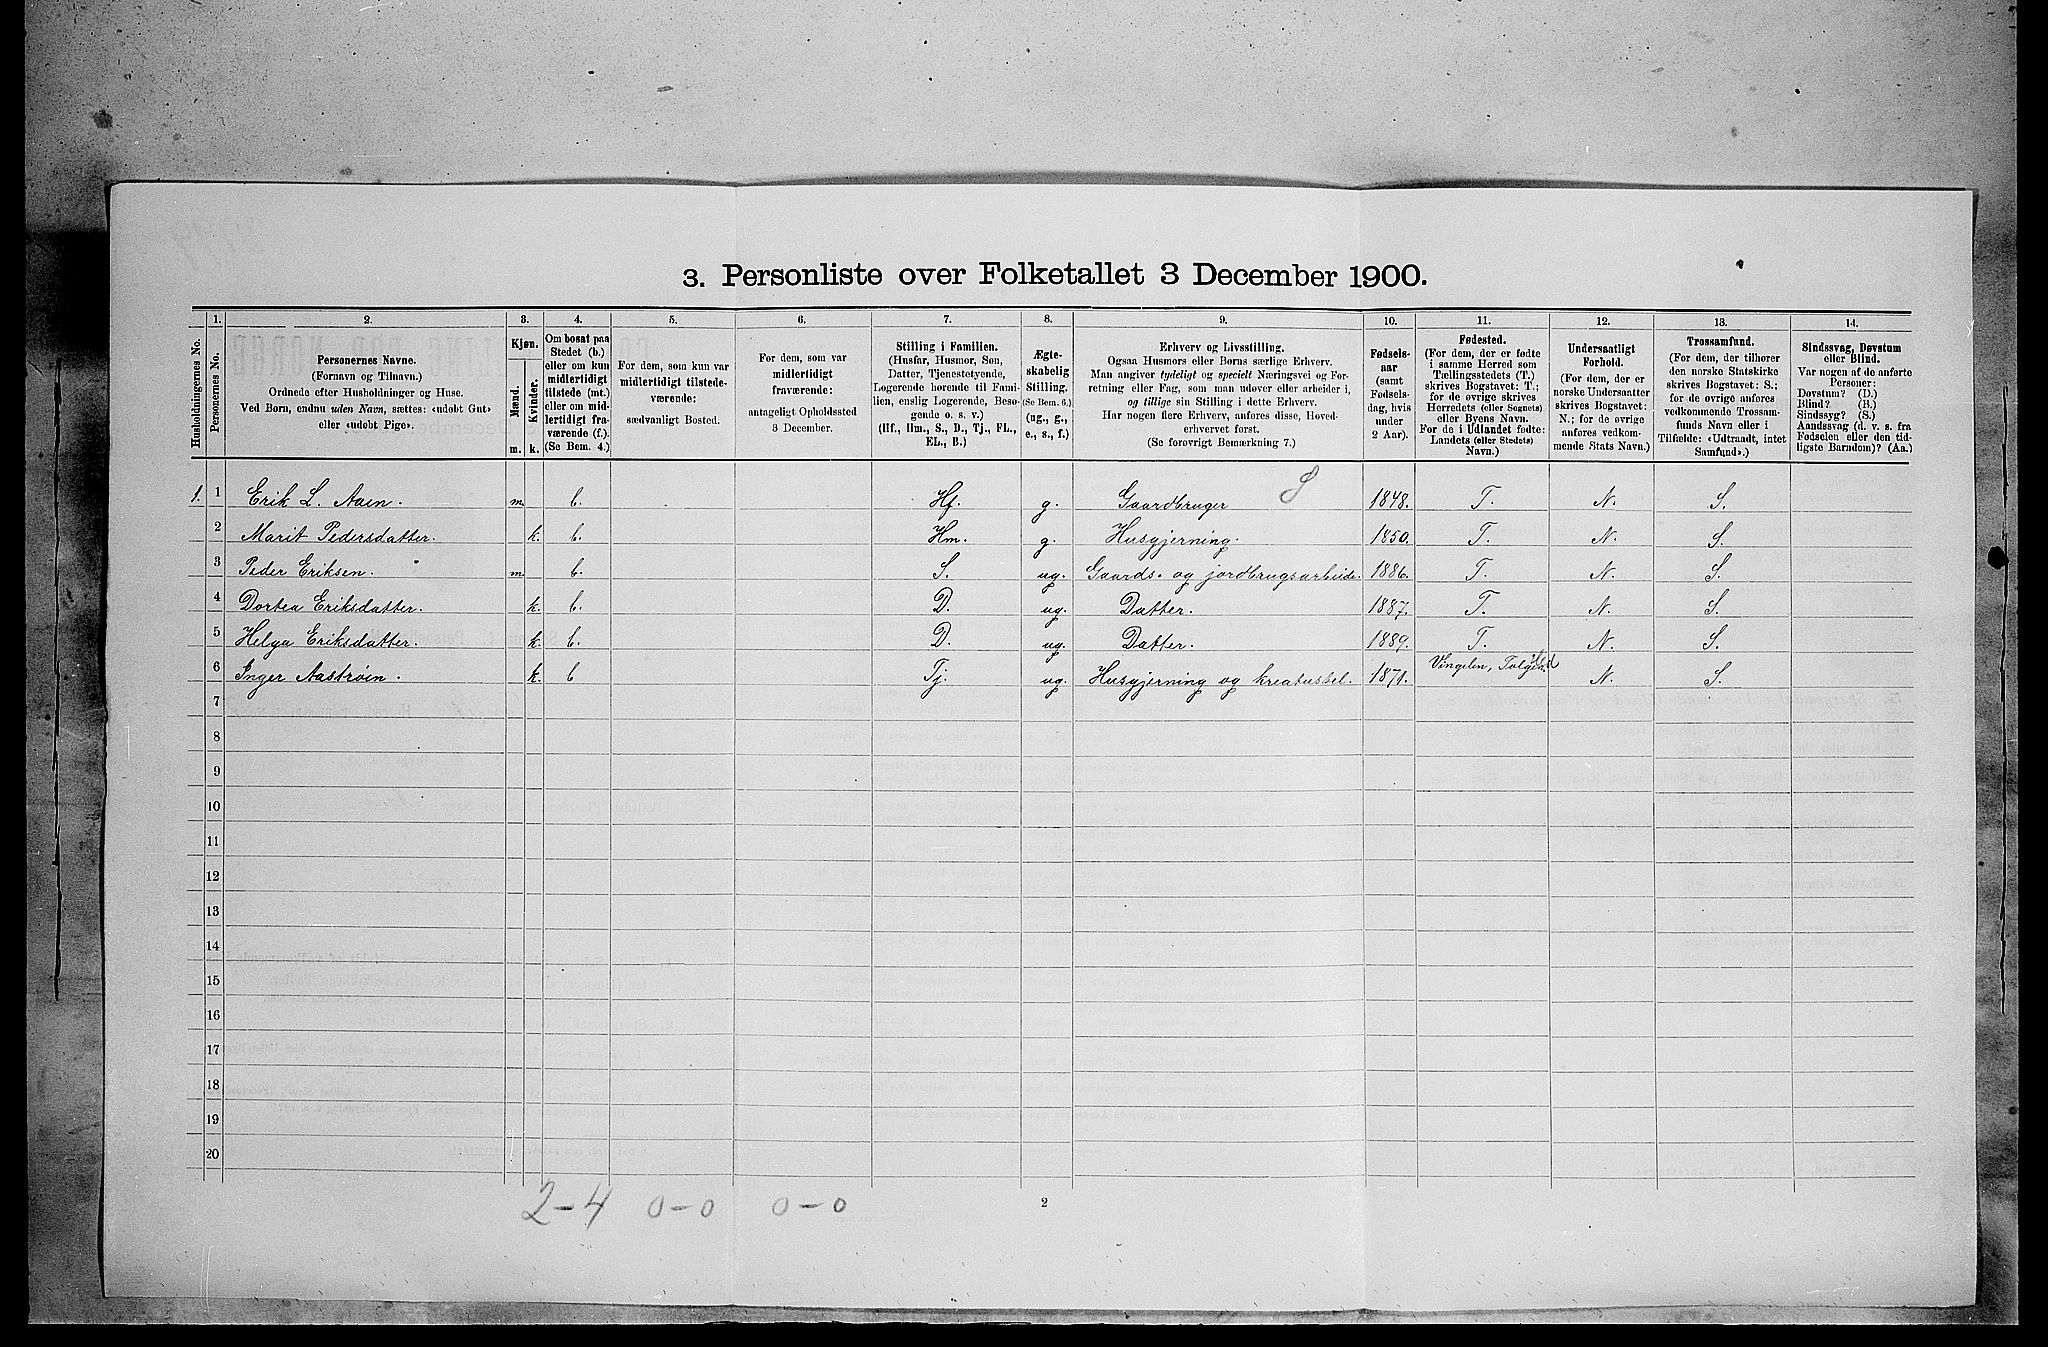 3. Personliste over Folketallet 3 December 1900.
1. 2. 3. 4. 5. 6. 7. 8. 9. 10. 11. 12. 13. 14.
Husholdningernes No.
Personernes No.
Personernes Navne.
(Fornavn og Tilnavn.)
Ordnede efter Husholdninger og Huse.
Ved Børn, endnu uden Navn, sættes: «udøbt Gut»
eller «udøbt Pige».
Kjøn.
Mænd.
Kvinder.
m. k.
Om bosat paa
Stedet (b.)
eller om kun
midlertidigt
tilstede (mt.)
eller om mid-
lertidigt fra-
værende (f.).
(Se Bem. 4.)
For dem, som kun var
midlertidigt tilstede-
værende:
sædvanligt Bosted.
For dem, som var
midlertidigt
fraværende:
antageligt Opholdssted
3 December.
Stilling i Familien.
(Husfar, Husmor, Søn,
Datter, Tjenestetyende,
Logerende hørende til Fami-
lien, enslig Logerende, Besø-
gende o. s. v.)
(Hf., Hm., S., D., Tj., FL.,
EL., B.)
Ægte-
skabelig
Stilling.
(Se Bem. 6.)
(ug., g.,
e., s., f.)
Erhverv og Livsstilling.
Ogsaa Husmors eller Børns særlige Erhverv.
Man angiver tydeligt og specielt Næringsvei og For-
retning eller Fag, som man udøver eller arbeider i,
og tillige sin Stilling i dette Erhverv.
Har nogen flere Erhverv, anføres disse, Hoved-
erhvervet først.
(Se forøvrigt Bemærkning 7.)
Fødsels-
aar
(samt
Fødsels-
dag, hvis
under
2 Aar).
Fødested.
(For dem, der er fødte
i samme Herred som
Tællingsstedets (T.)
skrives Bogstavet: T.;
for de øvrige skrives
Herredets (eller Sognets)
eller Byens Navn.
For de i Udlandet fødte:
Landets (eller Stedets)
Navn.)
Undersaatligt
Forhold.
(For dem, der er
norske Undersaatter
skrives Bogstavet:
N.; for de øvrige
anføres vedkom-
mende Stats Navn.)
Trossamfund.
(For dem, der tilhører
den norske Statskirke
skrives Bogstavet: S.;
for de øvrige anføres
vedkommende Trossam-
funds Navn eller i
Tilfælde: «Udtraadt, intet
Samfund».)
Sindssvag, Døvstum
eller Blind.
Var nogen af de anførte
Personer:
Døvstum? (D.)
Blind? (B.)
Sindssyg? (S.)
Aandssvag (d. v. s. fra
Fødselen eller den tid-
ligste Barndom)? (Aa.)
1. 1 Erik L. Aaen. m. b. Hf. g. Gaardbruger S 1848. T. N. S.
2 Marit Pedersdatter. k. b. Hm. g. Husgjerning. 1850. T. N. S.
3 Peder Eriksen. m. b. S. ug. Gaards- og jordbrugsarbeide. 1886. T. N. S.
4 Dortea Eriksdatter. k. b. D. ug. Datter. 1887. T. N. S.
5 Helga Eriksdatter. k. b. D. ug. Datter. 1889. T. N. S.
6 Inger Aastrøen. k. b Tj. ug. Husgjerning og kreaturstel. 1871. Vingelen, N. S.
7
8
9
10
11
12
13
14
15
16
17
18
19
20
2-4 0-0 0-0
2